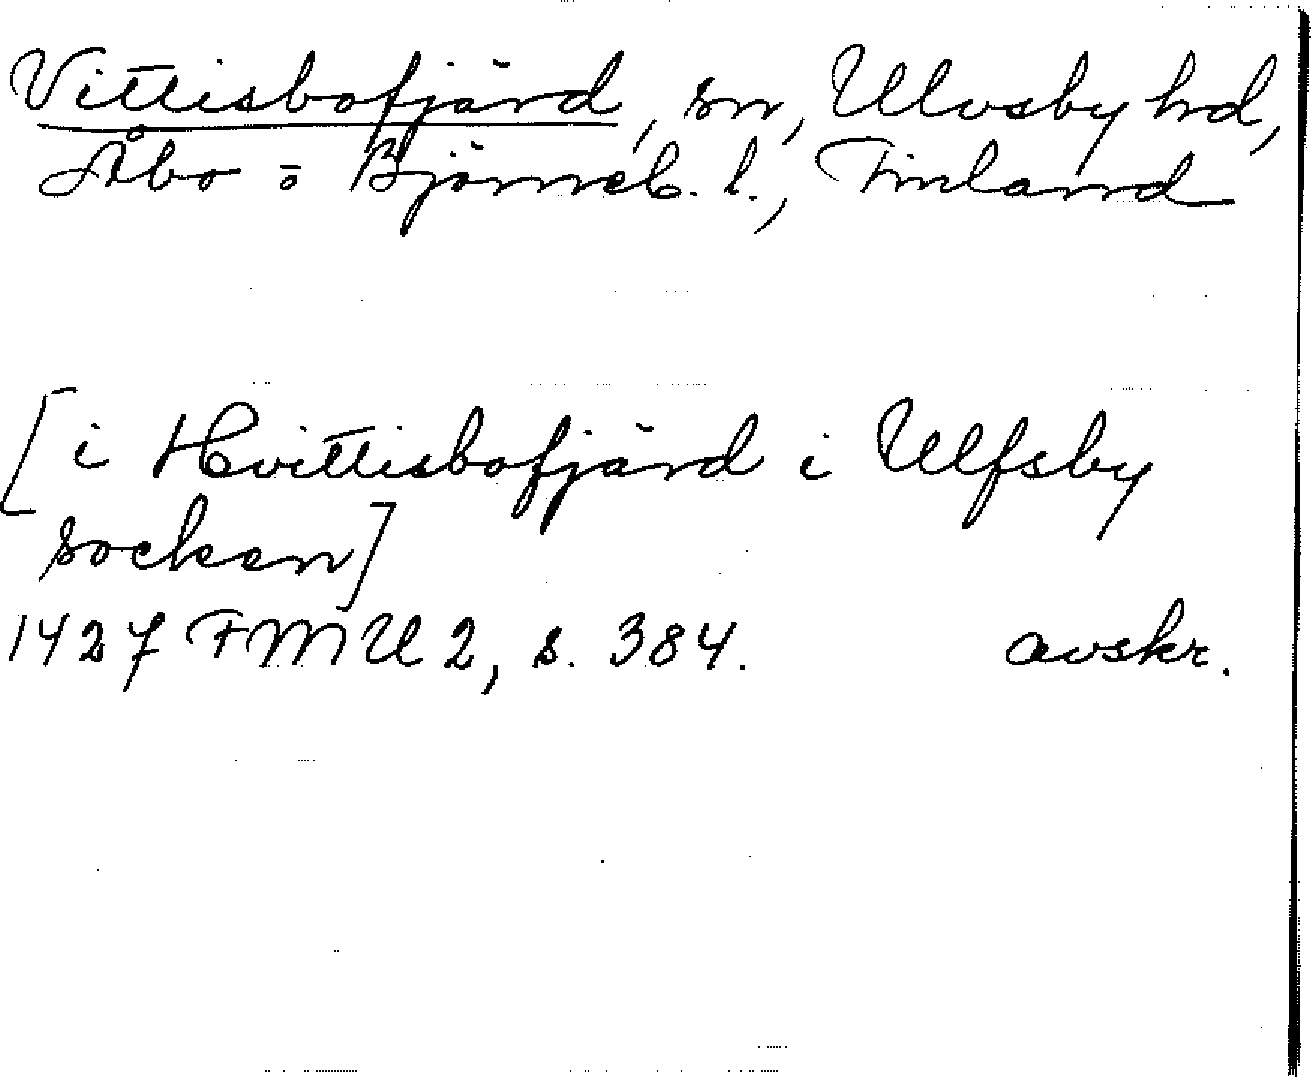 Vittisbofjärd, sn, Ulvsby hd,
Åbo o Björneb. l., Finland
[i Hvittisbofjärd i Ulfsby
socken]
1427 FMU 2, s. 384. avskr.